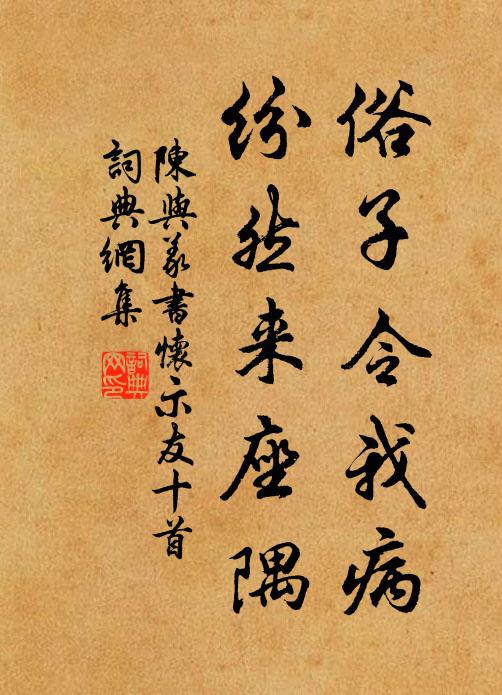 俗子令我病
纷然来座隅
陳與義書懷示友十首
詞典網集
詞典網印